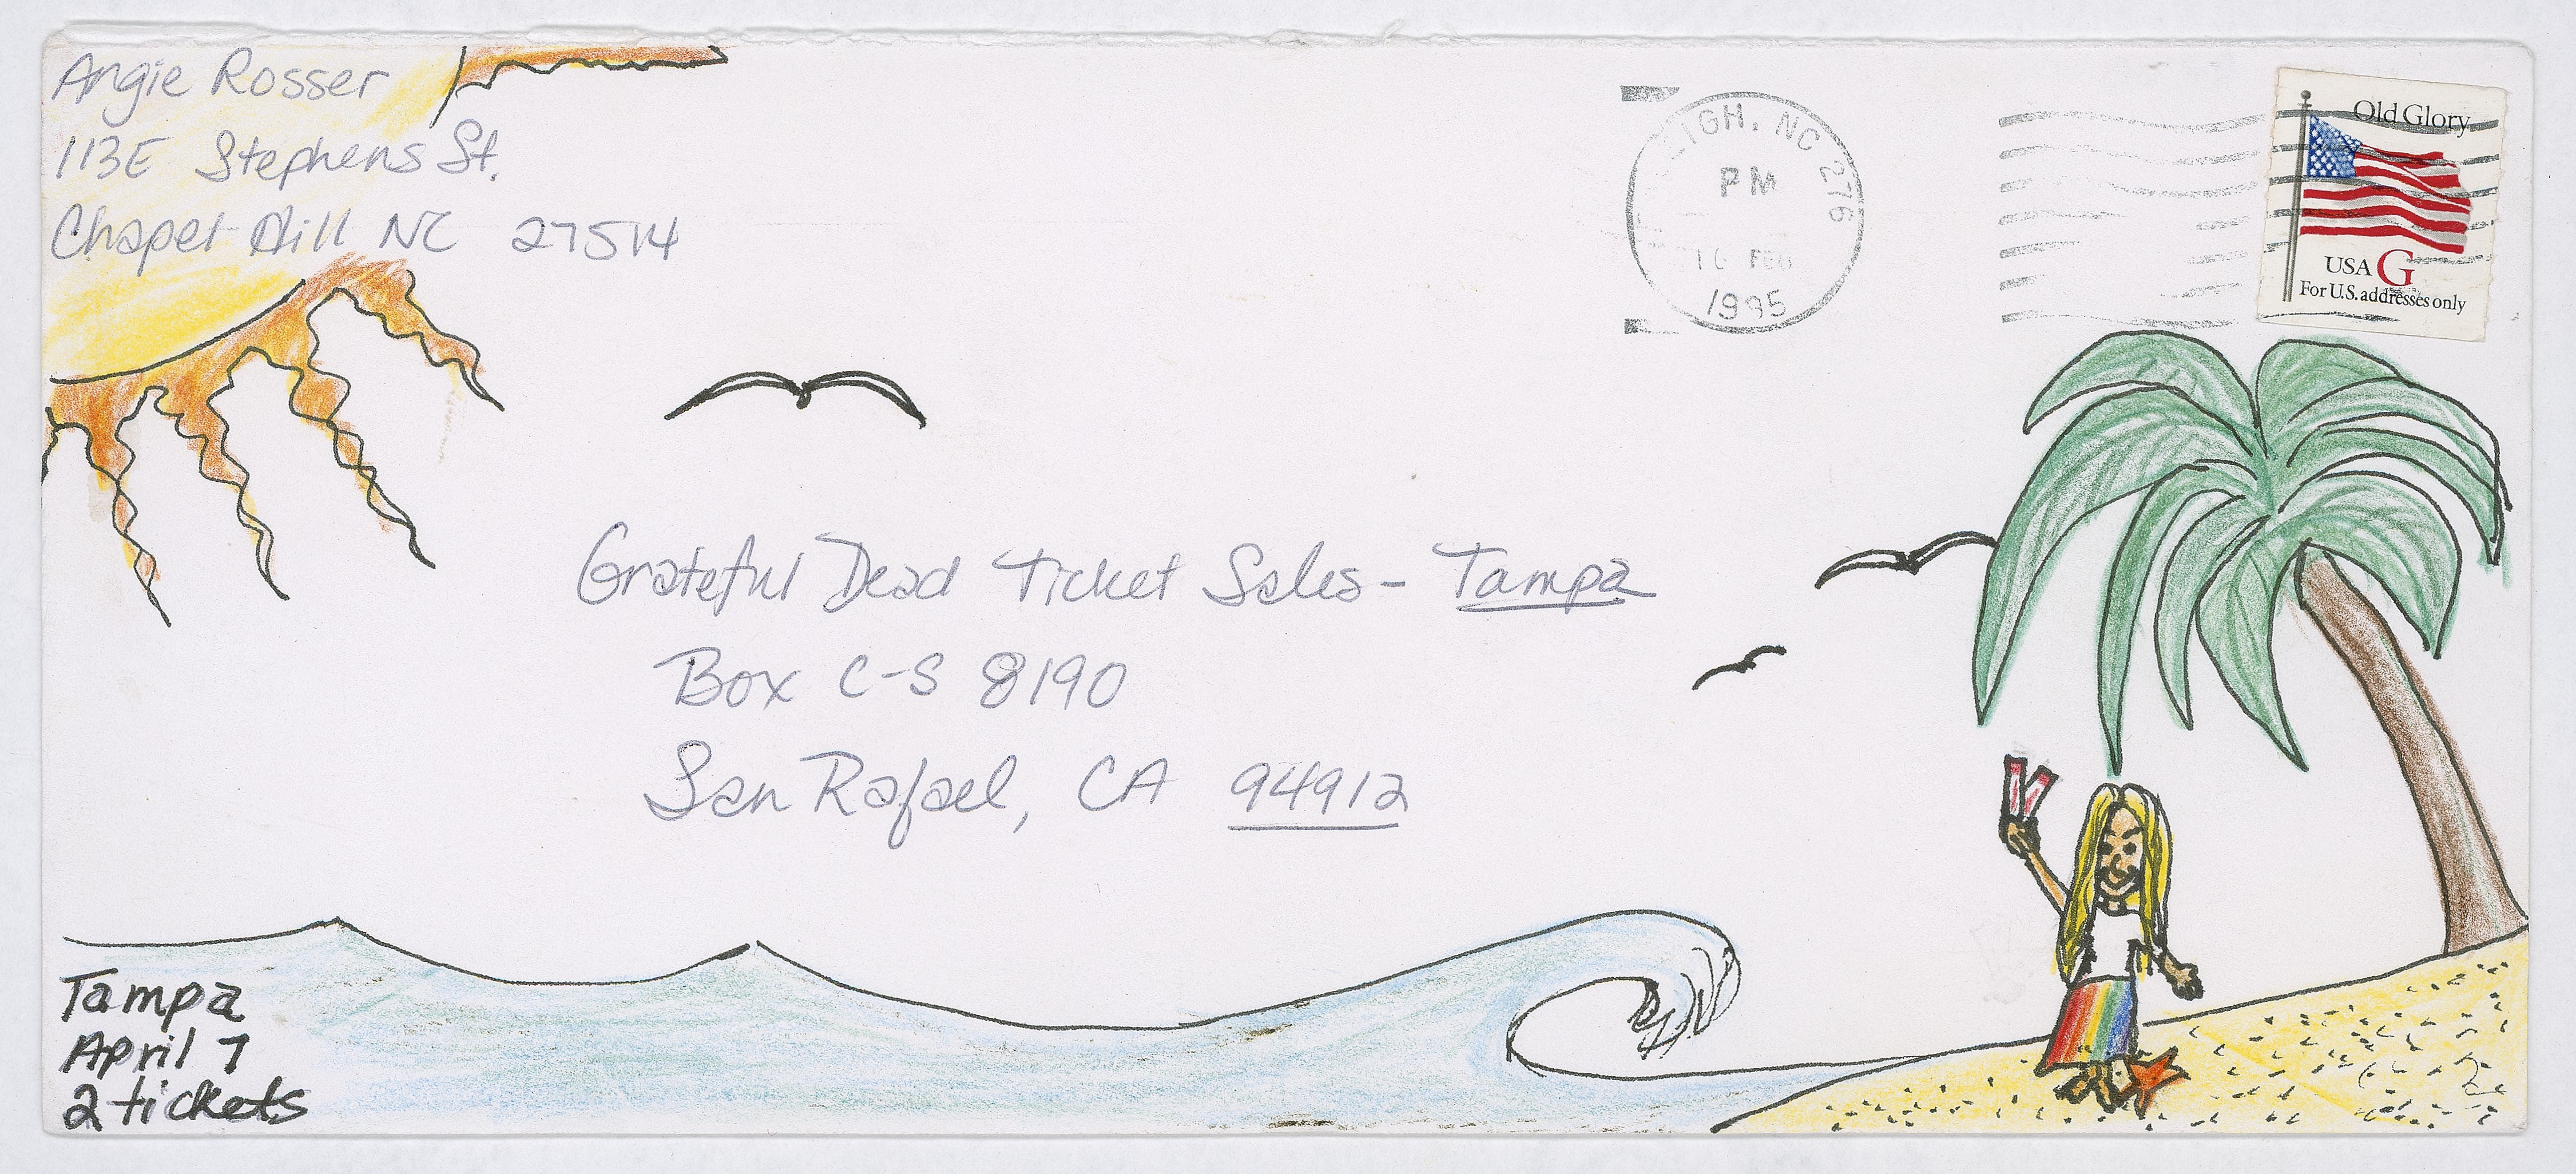 Angie Rosser
113E Stephens St.
Chapel Hill NC 27514
IGH, NC 276
PM
FEB
1995
Old Glory
USA G
For U.S. addresses only
Grateful Dead Ticket Sales - Tampa
Box C-S 8190
San Rafael, CA 94912
Tampa
April 7
2 tickets